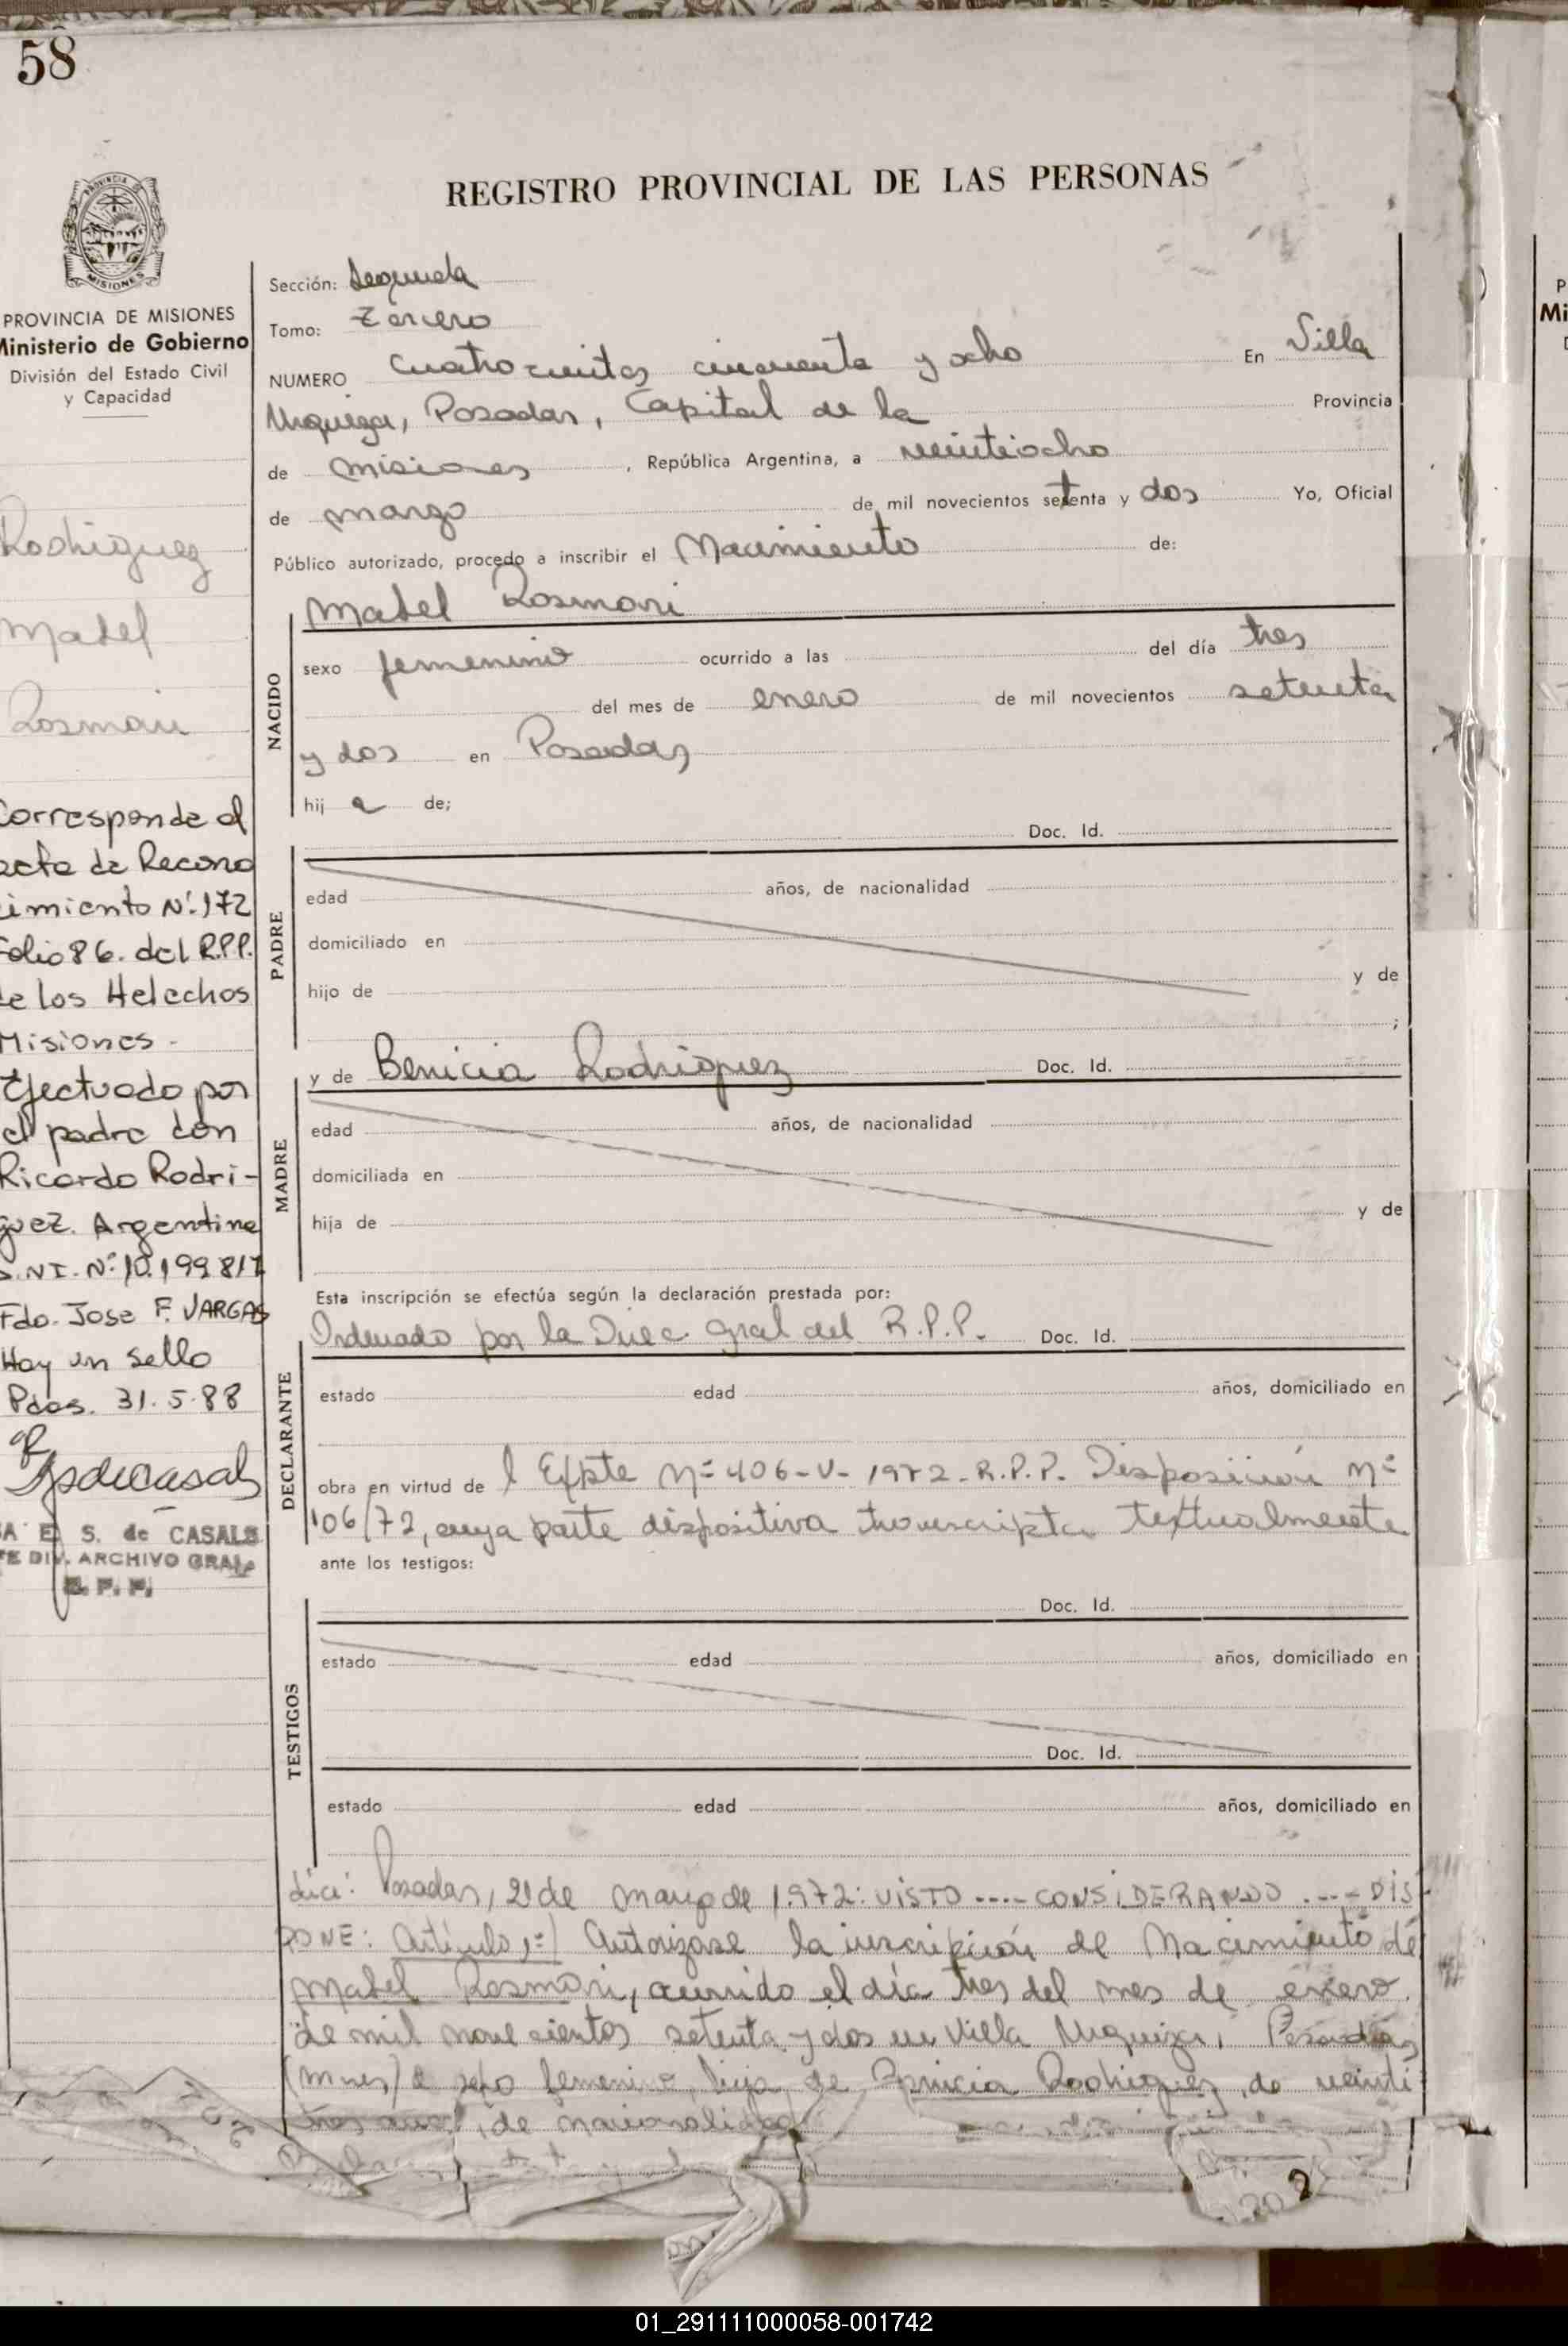 58
REGISTRO PROVINCIAL DE LAS PERSONAS
PROVINCIA DE MISIONES
Ministerio de Gobierno
División del Estado Civil
y Capacidad
Rodriguez
Mabel
Rosmari
Corresponde al
acta de Recono
imiento Nº 172
Folio 86. del R.P.P.
de los Helechos
Misiones -
Efectuado por
el padre don
Ricardo Rodri-
guez. Argentino
D.N.I. Nº 10.199.817
Fdo. Jose F. VARGAS
Hay un sello
Pdas. 31.5.88
E. S. de CASALS
DIV. ARCHIVO GRAL.
R. P. P.
Sección: Segunda
Tomo: Tercero
NUMERO Cuatrocientos cincuenta y ocho En Villa
Urquiza, Posadas, Capital de la Provincia
de Misiones, República Argentina, a veintiocho
de marzo de mil novecientos setenta y dos Yo, Oficial
Público autorizado, procedo a inscribir el Nacimiento de:
NACIDO
Mabel Rosmari
sexo femenino ocurrido a las del día tres
del mes de enero de mil novecientos setenta
y dos en Posadas
hij a de;
Doc. Id.
PADRE
edad años, de nacionalidad
domiciliado en
hijo de y de
;
MADRE
y de Benicia Rodriguez Doc. Id.
edad años, de nacionalidad
domiciliada en
hija de y de
Esta inscripción se efectúa según la declaración prestada por:
DECLARANTE
Ordenado por la Direc gral del R.P.P. Doc. Id.
estado edad años, domiciliado en
obra en virtud de l Expte Nº 406-V-1972-R.P.P. Disposición Nº
106/72, cuya parte dispositiva transcripta textualmente
ante los testigos:
TESTIGOS
Doc. Id.
estado edad años, domiciliado en
Doc. Id.
estado edad años, domiciliado en
dice: Posadas, 21 de marzo de 1972: VISTO ---- CONSIDERANDO ---- DIS
PONE: Artículo 1º) Autorizase la inscripción de Nacimiento de
Mabel Rosmari, ocurrido el día tres del mes de enero
de mil novecientos setenta y dos en Villa Urquiza, Posadas
(Mnes) de sexo femenino, hija de Benicia Rodriguez, de veinti
tres años, de nacionalidad
2
01_291111000058-001742